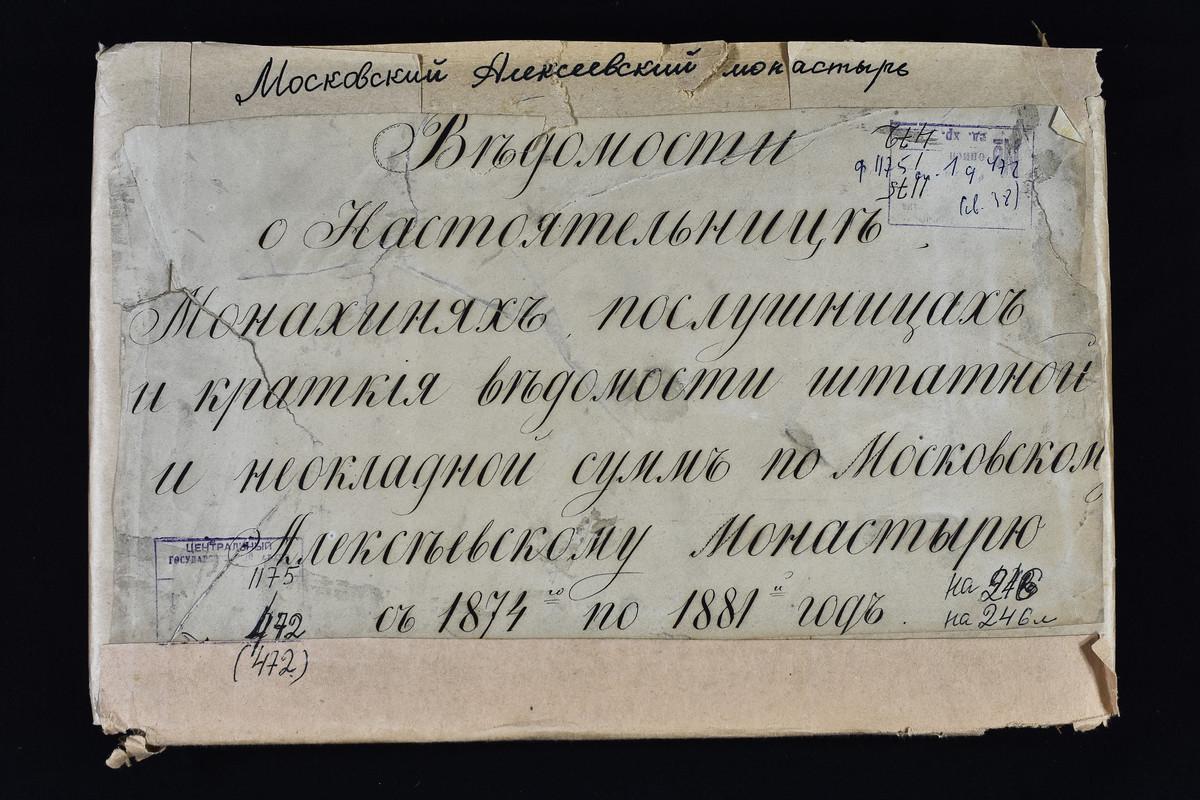 Московский Алексеевский монастырь
Вѣдомости
о Настоятельницѣ
Монахиняхъ, послушницахъ
и краткія вѣдомости штатной
и неокладной суммъ по Московском
Алексѣевскому Монастырю
съ 1874го по 1881й годъ.
ф 1175 оп. 1 д 472
(св. 32)
ЦЕНТРАЛЬНЫЙ
1175
472
(472)
на 246
на 246 л